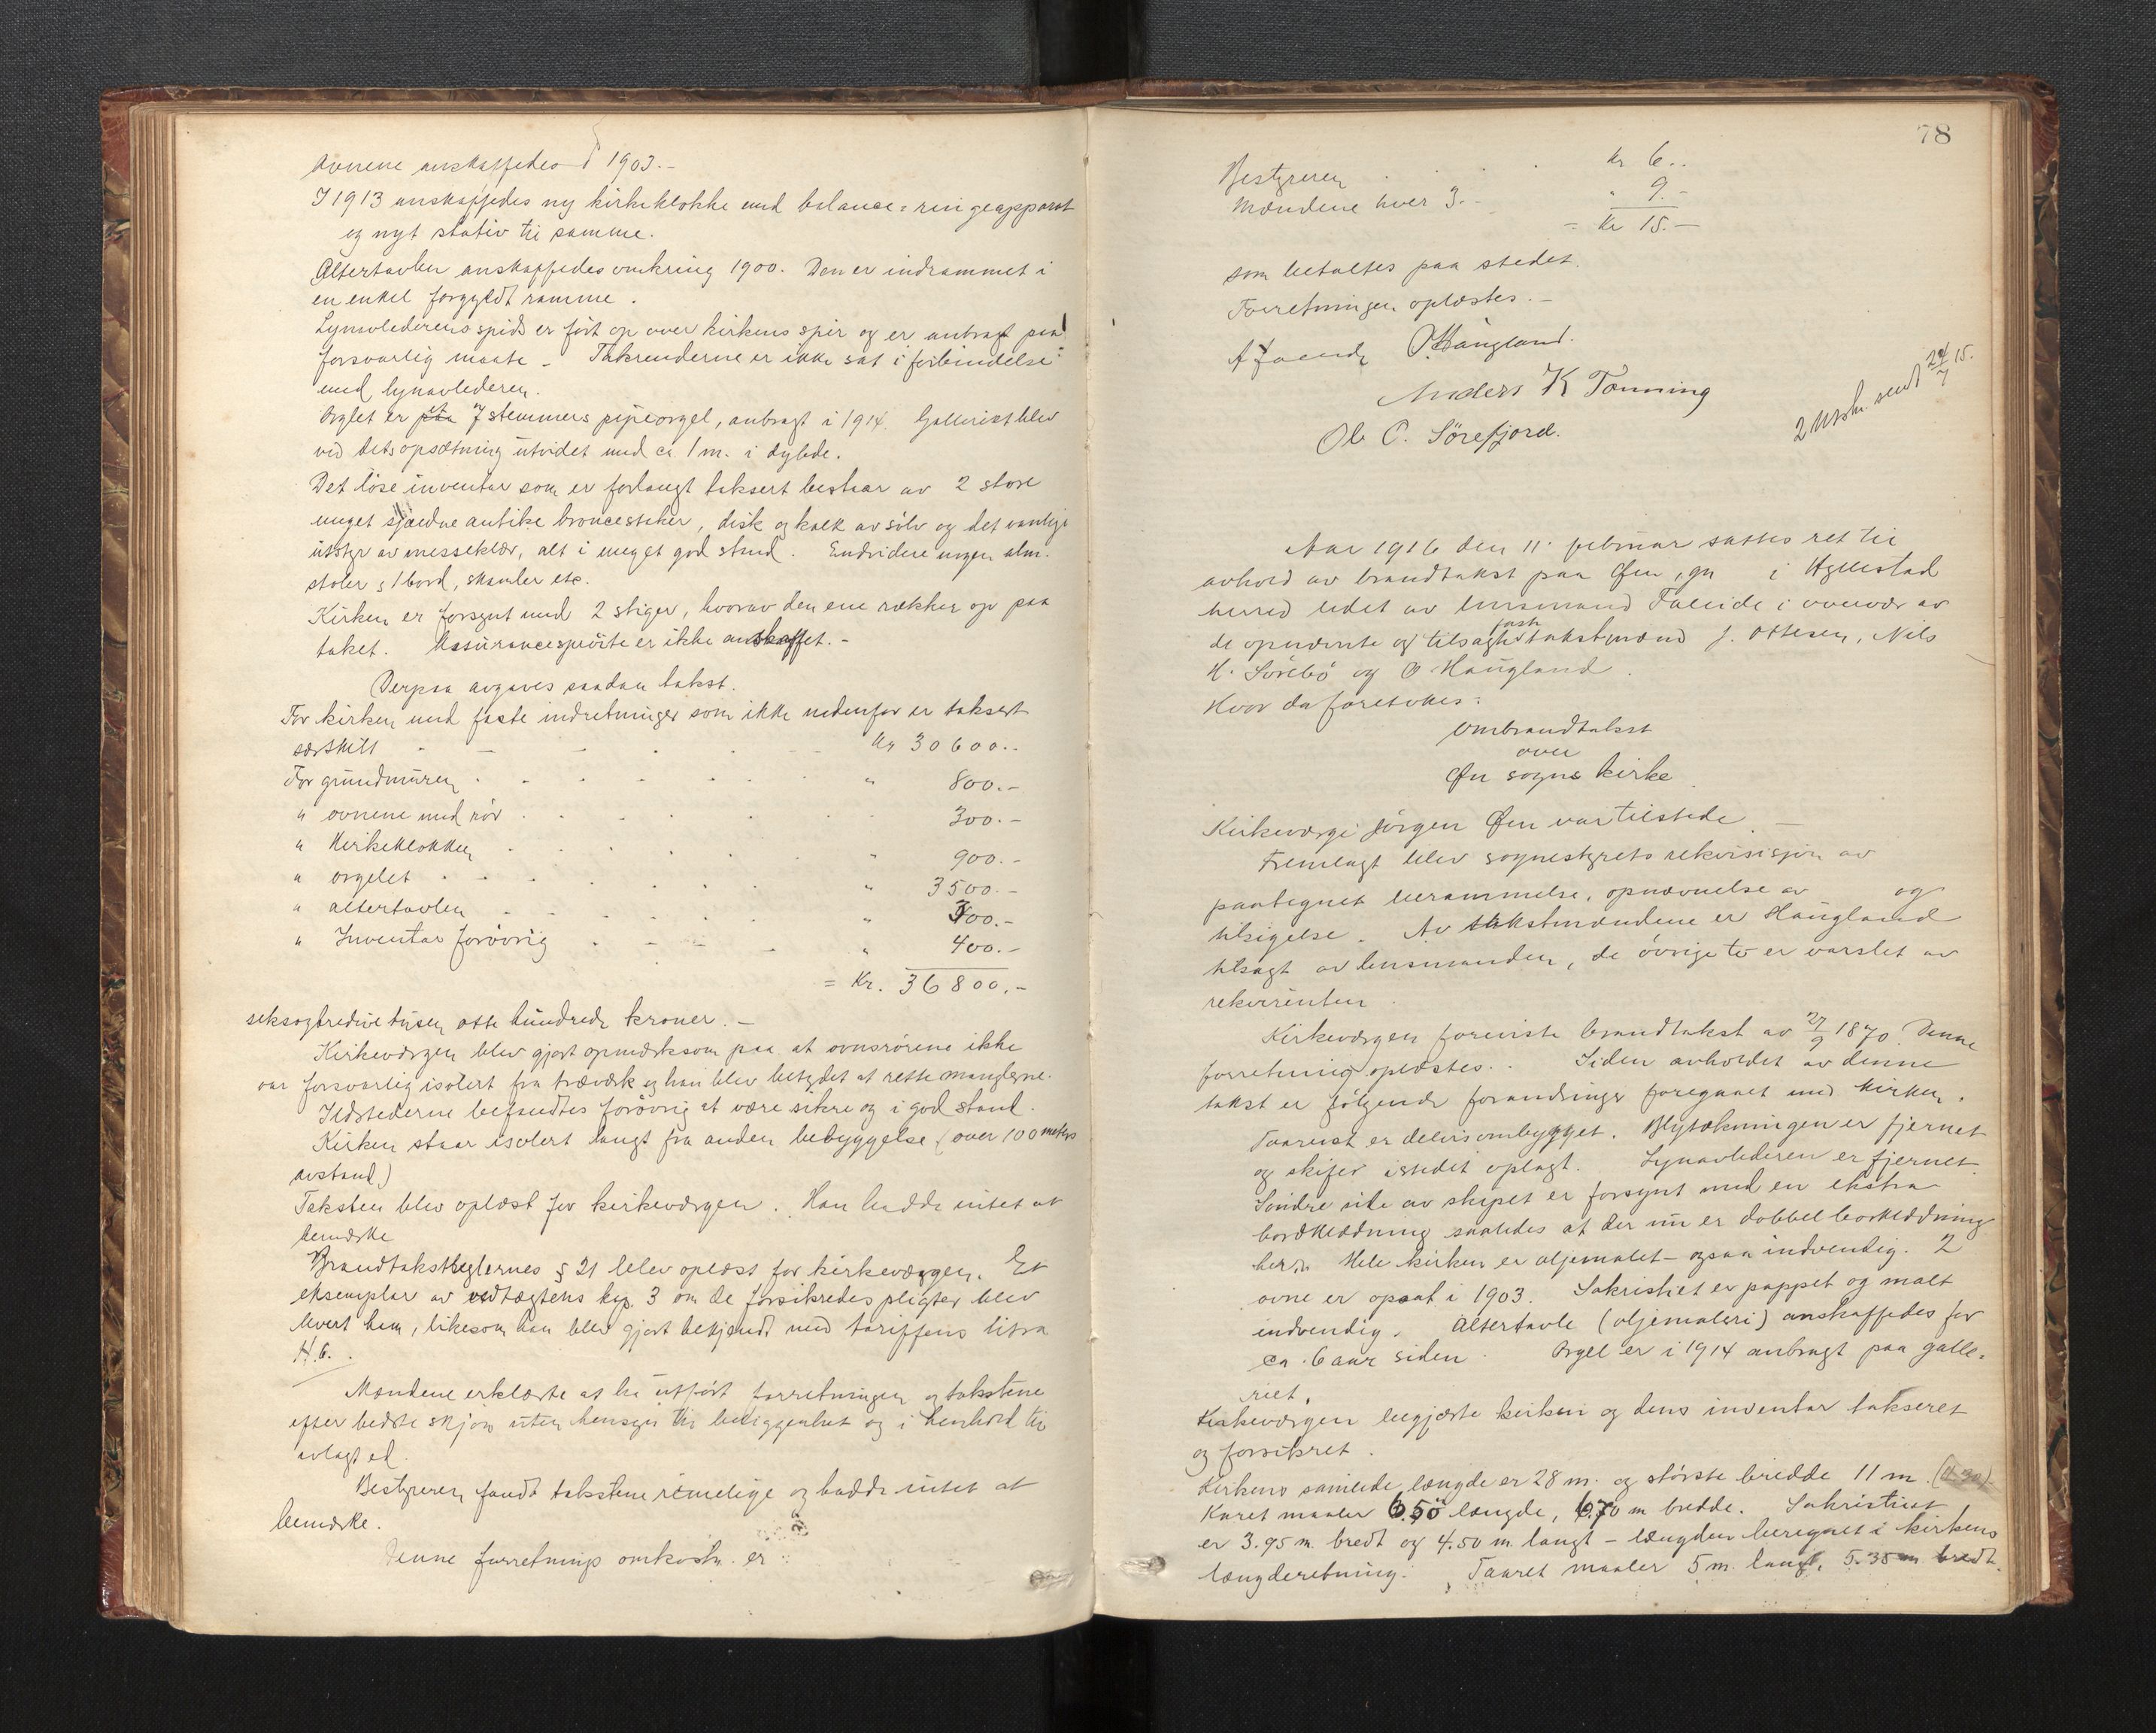 Ovnene anskaffedes i 1903.-
I 1913 anskaffedes ny kirkeklokke med balance-ringeapparat
og nyt stativ til samme.
Altertavlen anskaffedes omkring 1900. Den er indrammet i
en enkel forgyldt ramme.
Lynavlederens spids er ført op over kirkens spir og er anbragt paa
forsvarlig maate - Takrenderne er ikke sat i forbindelse
med lynavlederen.
Orglet er et 7 stemmers pipeorgel, anbragt i 1914. Galleriet blev
ved dets opsætning utvidet med ca. 1 m. i dybde.
Det løse inventar som er forlangt taksert bestaar av 2 store
meget sjældne antike broncestaker, disk og kalk av sølv og det vanlige
utstyr av messeklær, alt i meget god stand. Endvidere nogen alm.
stoler, 1 bord, skamler etc.
Kirken er forsynt med 2 stiger, hvorav den ene rækker op paa
taket. Assurancesprøite er ikke anskaffet.-
Derpaa avgaves saadan takst.
For kirken med faste indretninger som ikke nedenfor er taksert
særskilt - Kr 30600..
For grundmuren " 800.-
" ovnene med rør 300.-
" Kirkeklokken " 900.-
" orgelet " 3500.-
" altertavlen " 300.-
" Inventar forøvrig " 400.-
= Kr. 36800.-
seksogtredive tusen otte hundrede kroner.-
Kirkevergen blev gjort opmerksom paa at ovnsrørene ikke
var forsvarlig isolert fra træverk og han blev betydet at rette manglerne.
Ildstederne befandtes forøvrig at være sikre og i god stand.
Kirken staar isolert langt fra anden bebyggelse (over 100 meters
avstand)
Taksten blev oplæst for kirkevergen. Han hadde intet at
bemerke
Brandtakstreglernes § 21 blev oplæst for kirkevergen. Et
eksemplar av vedtægtens kap. 3 om de forsikredes pligter blev
levert ham, likesom han blev gjort bekjendt med tariffens litra
H.6.
Mændene erklærte at ha utført forretningen og takstene
efter bedste skjøn uten hensyn til beliggenhet og i henhold til
avlagt ed.
Bestyreren fandt takstene rimelige og hadde intet at
bemerke.
Denne forretnings omkostn. er
78
Bestyreren Kr 6..
Mændene hver 3.- " 9.-
= Kr 15.-
som betaltes paa stedet.
Forretningen oplæstes.-
A Faleide O Haugland.
Anders K Tønning
Ole O. Sørefjord.
2 utskr. sendt 24/7 15.
Aar 1916 den 11. februar sattes ret til
avhold av brandtakst paa Øen, gn i Hyllestad
herred ledet av lensmand Faleide i overvær av
de opnævnte og tilsagte fast takstmænd J. Ottesen, Nils
H. Sørebø og O. Haugland.
Hvor da foretokes:
Ombrandtakst
over
Øn sogns kirke
Kirkeverge Jørgen Øen var tilstede.-
Fremlagt blev sognestyrets rekvisisjon av
paategnet berammelse, opnævnelse av og
tilsigelse. Av takstmændene er Haugland
tilsagt av lensmanden, de øvrige to er varslet av
rekvirenten.
Kirkevergen foreviste brandtakst av 27/9 1870. Denne
forretning oplæstes. Siden avholdet av denne
takst er følgende forandringer foregaaet med kirken.
Taarnet er delvis ombygget. Blytækningen er fjernet
og skifer istedet oplagt. Lynavlederen er fjernet.
Søndre side av skipet er forsynt med en ekstra
bordklædning saaledes at der nu er dobbel bordklædning
her. Hele kirken er oljemalet - ogsaa indvendig. 2
ovne er opsat i 1903. Sakristiet er pappet og malt
indvendig. Altertavle (oljemaleri) anskaffedes for
ca. 6 aar siden. Orgel er i 1914 anbragt paa galle-
riet.
Kirkevergen begjærte kirken og dens inventar takseret
og forsikret.
Kirkens samlede længde er 28 m. og største bredde 11 m.
Koret maaler 6.50 længde, 6.70 m bredde. Sakristiet
er 3.95 m. bredt og 4.50 m. langt - længden beregnet i kirkens
længderetning. Taaret maaler 5 m. langt, 5.35 m bredt.